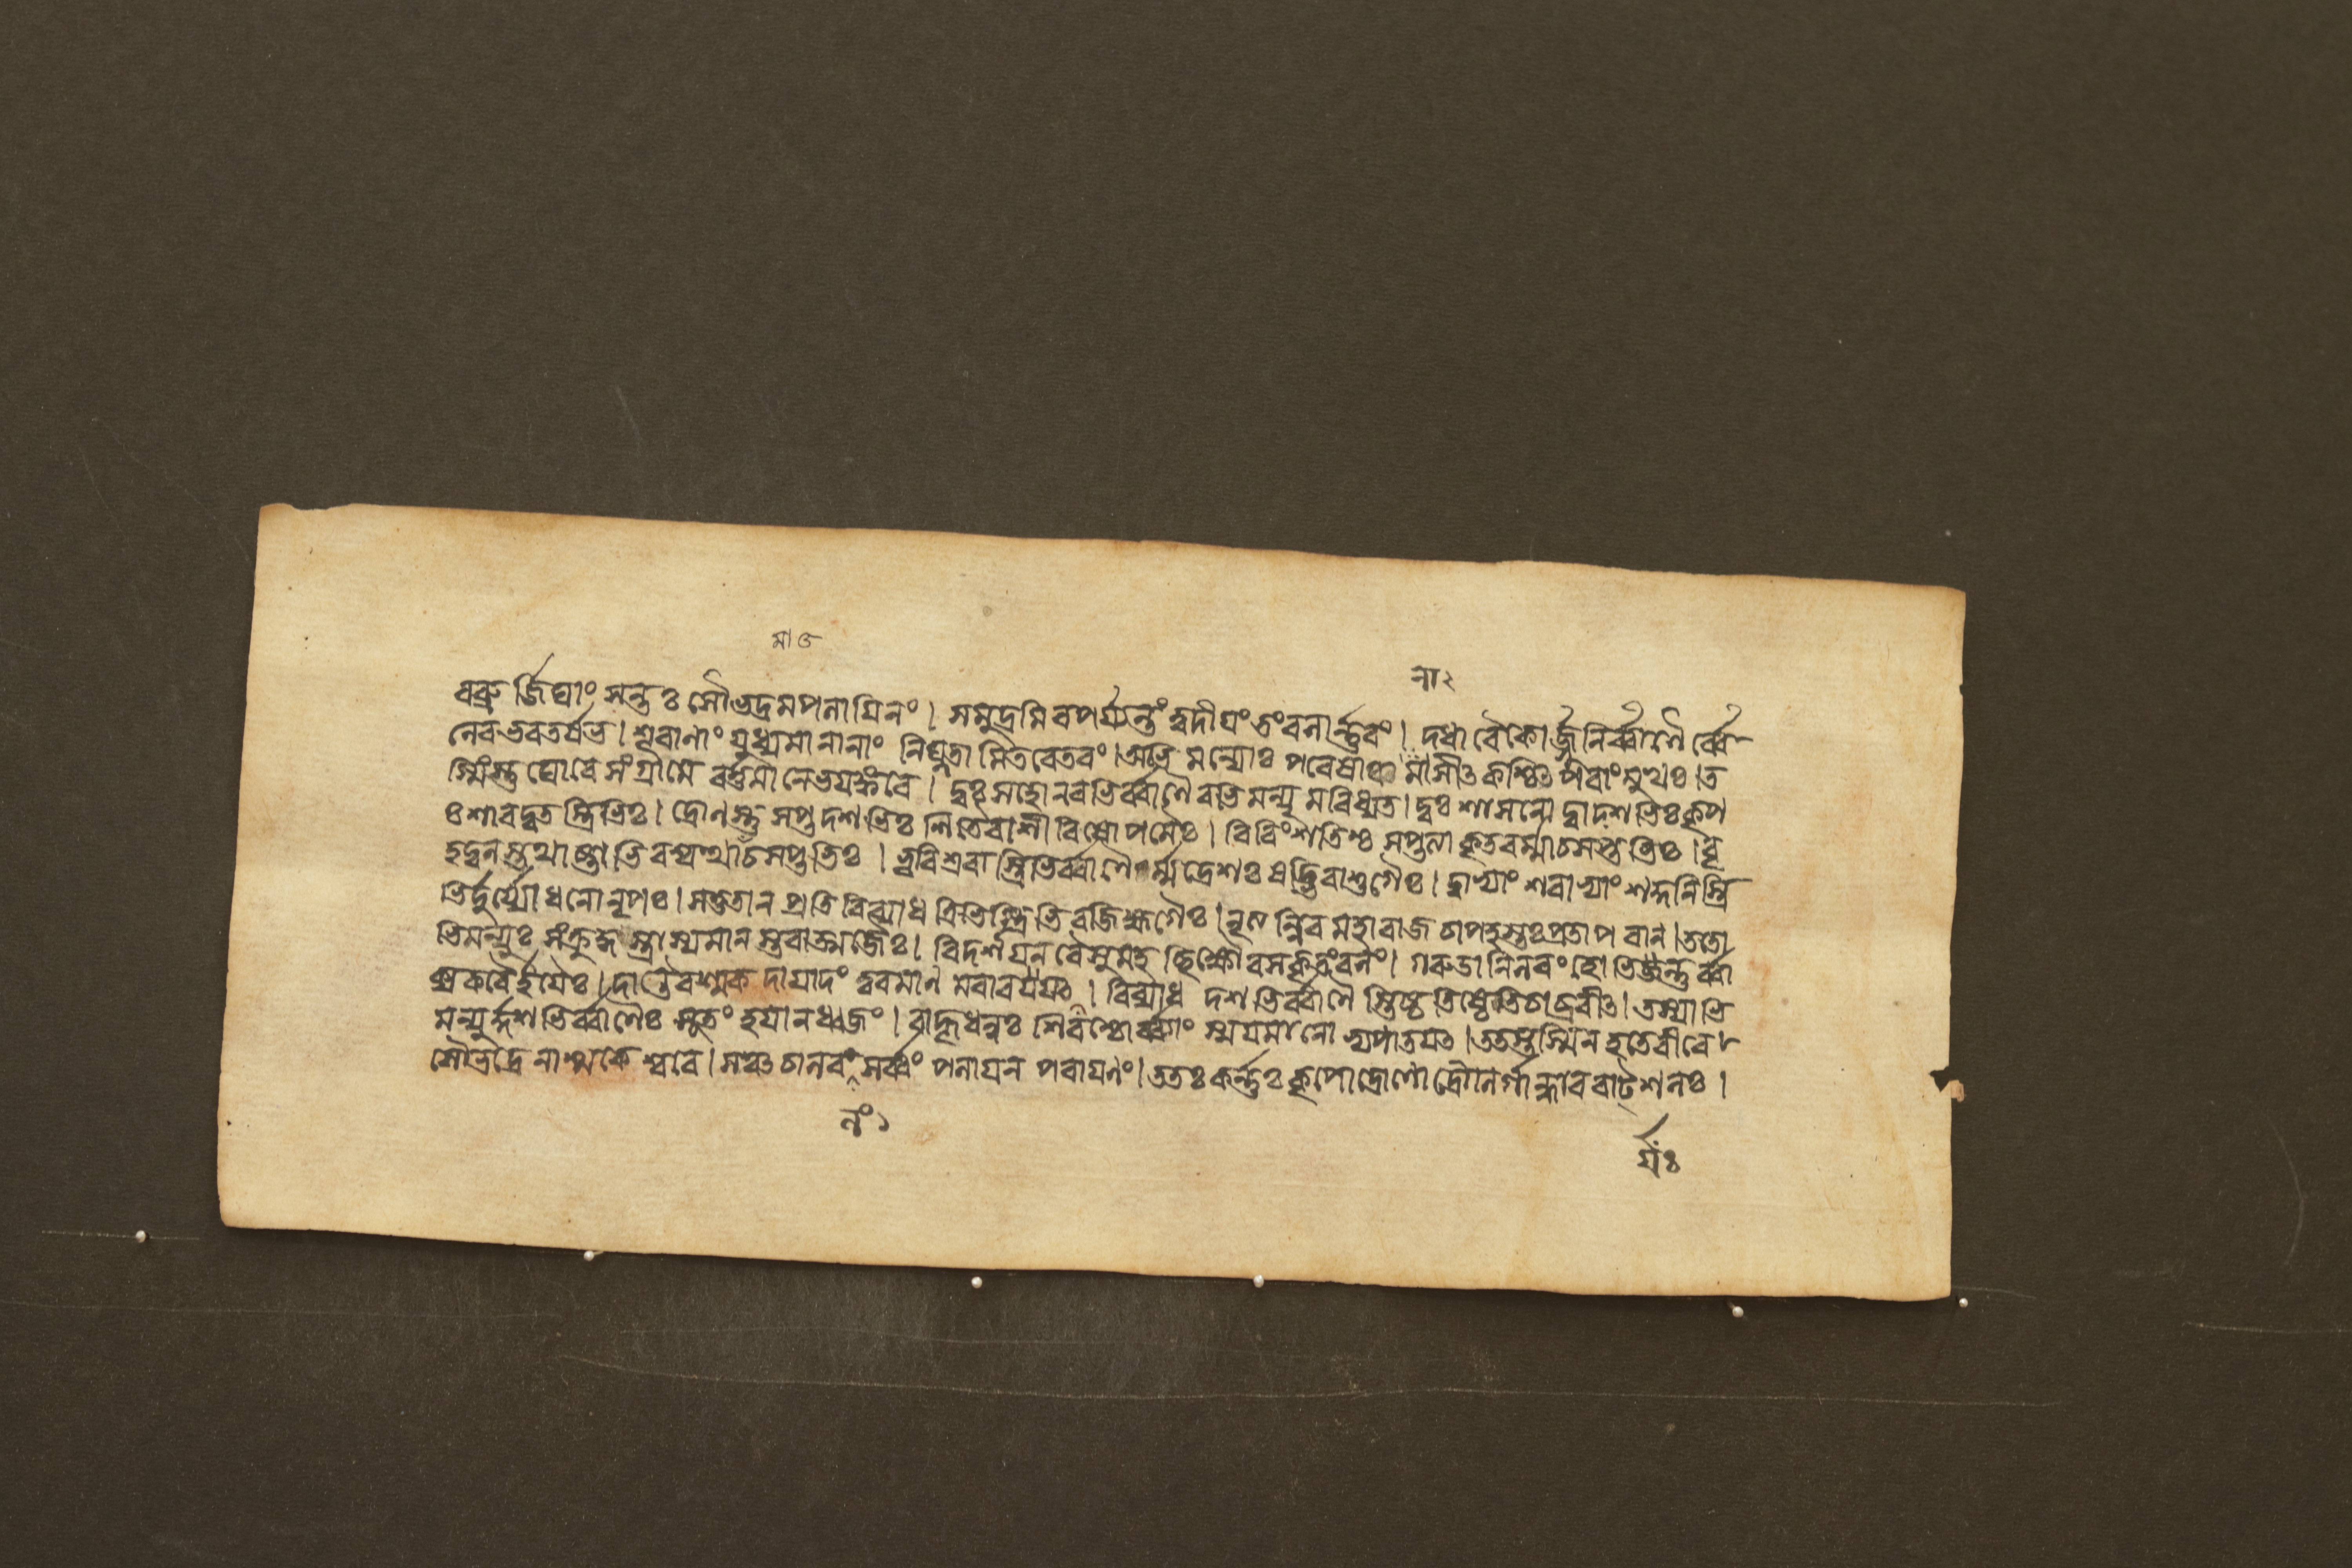 মা৫
না২
বব্রুর্জিঘাংসন্তঃ সৌভদ্রমপলায়িনং। সমুদ্রমিবপর্য্যস্তং ত্বদীয়ং তংবলার্ণ্ণবং। দধারৈকোর্জ্জুনির্ব্বাণৈর্ব্বে
লেবভরতর্ষভ। শূরাণাং যুধ্যমানানাং নিঘ্নতামিতরেতরং। অভিমন্যোঃ পরেষাঞ্চ নাসীৎ কশ্চিৎ পরাংমুখঃ। ত
স্মিংস্তু ঘোরে সংগ্রামে বর্ত্তমানেভয়ঙ্করে। দুঃসহোনবভির্ব্বাণৈরভিমন্যুমবিধ্যত। দুঃশাসনো দ্বাদশভিঃ কৃপ
ঃ শারদ্বতস্ত্রিভিঃ। দ্রোণস্তু সপ্তদশভিঃ শরৈরাশীবিষোপমৈঃ। বিবিংশতিশ্চ সপ্তত্যা কৃতবর্ম্মাচসপ্তভিঃ। বৃ
হদ্বলস্তথাষ্টাভিরশ্বত্থামাচসপ্তভিঃ। ভূরিশ্রবাস্ত্রিভির্ব্বাণৈর্ম্মদ্রেশঃ ষড্ভিরাশুগৈঃ। দ্বাভ্যাং শরাভ্যাং শকুনিস্ত্রি
ভির্দ্দুর্য্যোধনোনৃপঃ। সতুতান প্রতিবিব্যাধ ত্রিভিস্ত্রিভিরজিহ্মগৈঃ। নৃত্যন্নিব মহারাজ চাপহস্তঃ প্রতাপবান। ততো
ভিমন্যুঃ সংক্রুদ্ধস্ত্রাস্যমানস্তবাত্মজৈঃ। বিদর্শয়নবৈসুমহচ্ছিক্ষৌরসকৃতংবলং। গরুডানিলরংহোভির্যন্তুর্ব্বা
ক্যকরৈর্হয়ৈঃ। দান্তৈরশ্মকদায়াদং ত্বরমাণমবারয়ৎ। বিব্যাধ দশভির্ব্বাণৈস্তিষ্ঠতিষ্ঠেতিচাব্রবীৎ। তস্যাভি
মন্যুর্দ্দশভির্ব্বাণৈঃ সূতং হয়ানধ্বজং। বাহূধনুঃ শিরশ্চোর্ব্ব্যাং স্ময়মানোভ্যপাতয়ৎ। ততস্তস্মিনহতেবীরে
সৌভদ্রেণাশ্মকেশ্বরে। সঞ্চচালবলং সর্ব্বং পলায়নপরায়ণং। ততঃ কর্ণ্ণঃ কৃপোদ্রোণোদ্রৌণির্গান্ধাররাট্শলঃ।
লং১